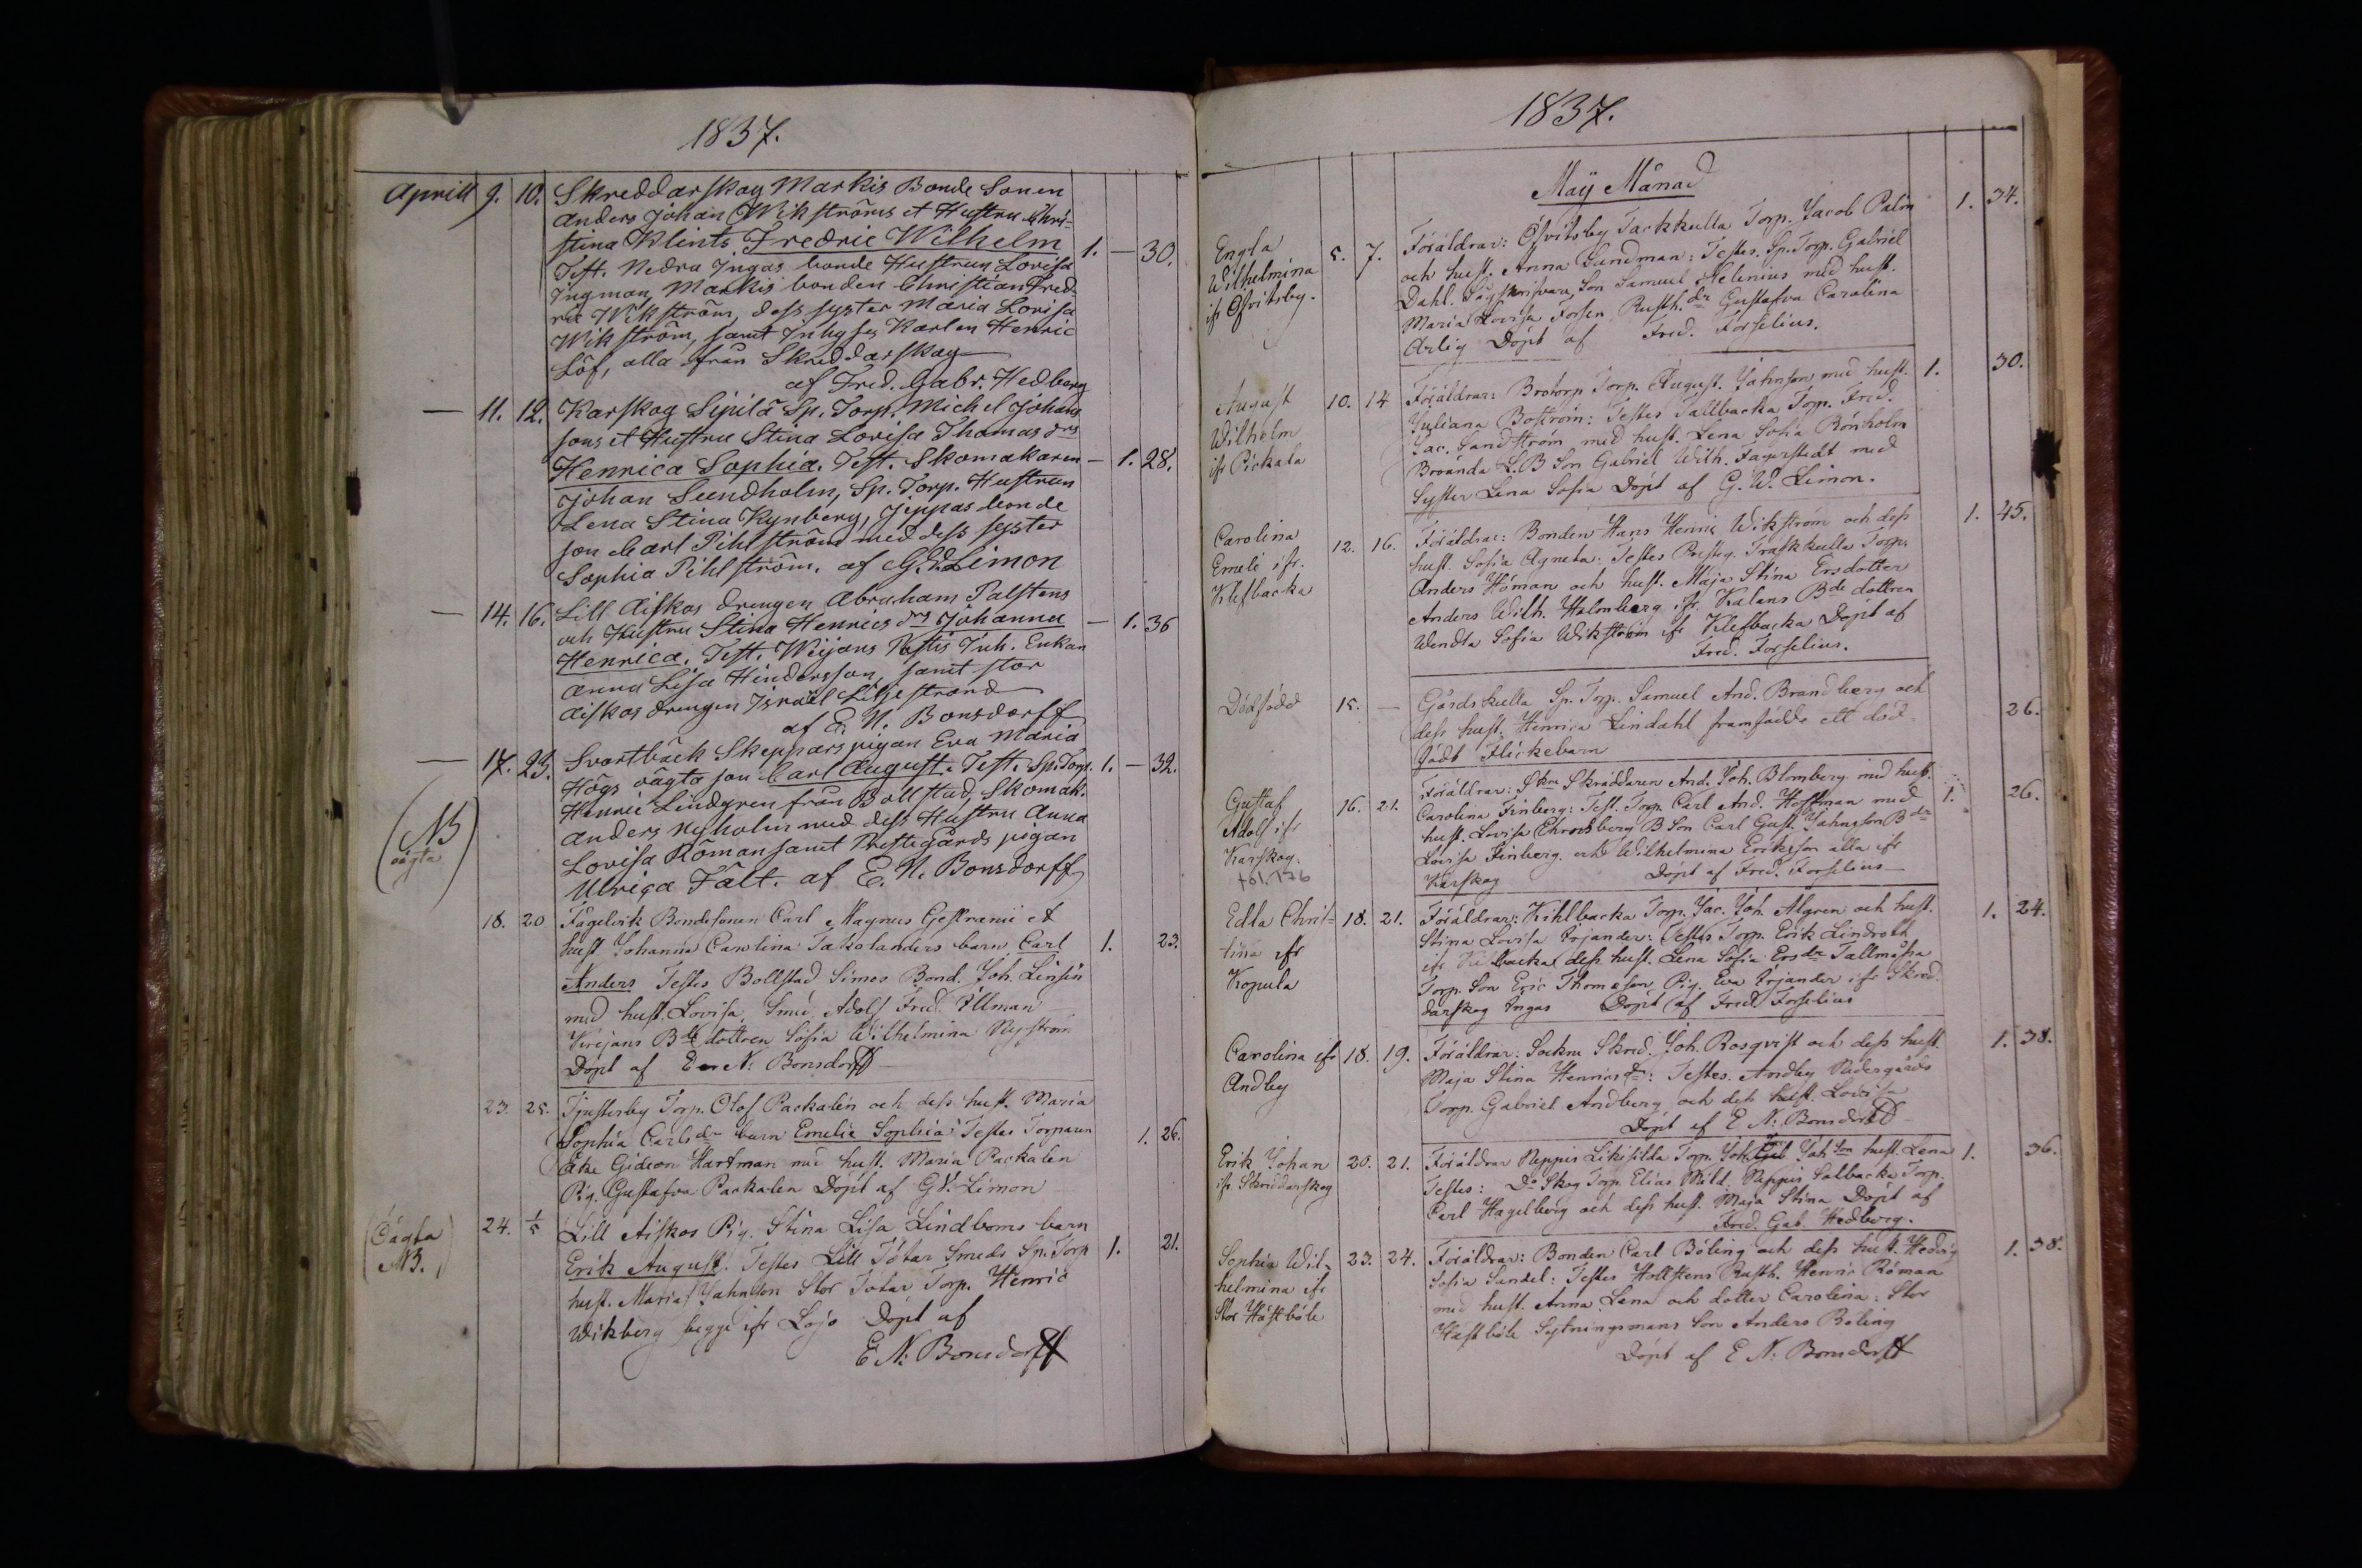 1837.
Aprill 9. 10. Skreddarskog Markis Bonde Sonen
Anders Johan Wikströms et Hustru Chri-
stina Klints Fredric Wilhelm 1. — 30.
Test. Nedra Ingas bonde Hustrun Lovisa
Ingman, Markis bonden Christian Fred-
ric Wikström, dess syster Maria Lovisa
Wikström, samt Inhyses Karlen Henric
Löf, alla från Skreddarskog
af Fred. Gabr. Hedberg
— 11. 12. Karskog Sipilä Sp. Torp. Michel Johans
sons et Hustru Stina Lovisa Thomas drs
Henrica Sophia. Test. Skomakaren — 1. 28.
Johan Sundholm, Sp. Torp. Hustrun
Lena Stina Rynberg, Jeppas bonde
son Carl Pihlström med dess syster
Sophia Pihlström. af G. W. Limon
— 14. 16. Lill Aiskos drengen Abraham Palstens
och Hustru Stina Henrics drs Johanna — 1. 36
Henrica. Test. Weijans Inh. Enkan
Anna Lisa Hindersson, samt stor
Aiskos drengen Israël Liljestrand
af E. N. Bonsdorff
— 17. 23. Svartbäck Skeppars pigan Eva Maria
Högs oägta son Carl August. Test. Sp. Torp. 1. — 32.
(NB oägta) Henric Lindgren från Bollstad, Skomak.
Anders Nyholm med dess Hustru Anna
Lovisa Roman samt Prestegårds pigan
Ulrica Fält. af E. N. Bonsdorff
18. 20 Fagelvik Bondesonen Carl Magnus Gestranii et
hust Johanna Carolina Takolanders barn Carl 1. 23.
Anders Testes Bollstad Simos Bond. Joh. Linsén
med hust. Lovisa, Smed. Adolf Fred. Öllman
Weijans Bde dottren Sofia Wilhelmina Nyström
Döpt af E N: Bonsdorff
23. 25. Tjusterby Torp. Olof Packalén och dess hust. Maria
Sophia Carlsdr barn Emelie Sophia Testes Torparen 1. 26.
Gideon Hartman med hust. Maria Packalen
Pig. Gustafva Packalen Döpt af G W. Limon
(Oägta NB.) 24. 1/5 Lill Aiskos Pig. Stina Lisa Lindboms barn
Erik August. Testes Lill Tötar Smeds Sp. Torp 1. 21.
hust. Maria Jahnsson Stor Totar Torp. Henric
Wikberg begge ifr Lojo Döpt af
E N: Bonsdorff
1837.
Maÿ Månad
Engla Wilhelmina ifr Ösvitsby. 5. 7. Föräldrar: Ösvitsby Tackkulla Torp. Jacob Palin 1. 34.
och hust. Anna Sundman: Testes. Sp. Torp. Gabriel
Dahl. Son Samuel Helenius med hust.
Maria Lovisa Forsen Rusth. dr Gustafva Carolina
Arlig Döpt af Fred. Forselius.
August Wilhelm ifr Pickala 10. 14 Föräldrar: Brotorp Torp. August. Jahnsson med hust. 1. 30.
Juliana Boström: Testes Tallbacka Torp. Fred.
Jac. Sandström med hust. Lena Sofia Rönholm
Broända L. B Son Gabriel Wilh. Fagerstedt med
Syster Lena Sofia Döpt af G. W. Limon.
Carolina Emeli ifr. Klefbacka 12. 16. Föräldrar: Bonden Hans Henric Wikström och dess 1. 45.
hust. Sofia Agneta: Testes Prestg. Träskkulla Torp.
Anders Höman och hust. Maja Stina Ersdotter
Anders Wilh. Holmberg ifr. Kalans Bde dottren
Wendla Sofia Wikström ifr Klefbacka Döpt af
Fred. Forselius.
Dödfödd 15. — Gårdskulla Sp. Torp. Samuel And. Brandberg och 26.
dess hust. Henrica Lindahl framfödde ett död-
födt Flickebarn
Gustaf Adolf ifr Karskog. fol. 176 16. 21. Föräldrar: Skne Skräddaren And. Joh. Blomberg med hust. 1. 26.
Carolina Finberg: Test. Torp. Carl And. Hoffman med
hust. Lovisa Ehrnsberg B Son Carl Gust. Jahnsson B dr
Lovisa Finberg och Wilhelmina Eriksson alla ifr
Karskog Döpt af Fred. Forselius
Edla Chris- tina ifr Kopula 18. 21. Föräldrar: Kihlbacka Torp. Jac. Joh. Algren och hust. 1. 24.
Stina Lovisa Örjander: Testes Torp. Erik Lindroth
ifr dess hust. Lena Sofia Ersdr Tallmåsa
Torp. Son Eric Thomasson Pig. Eva Örjander ifr Skred-
darskog Ingas Döpt af Fred Forselius
Carolina ifr Andby 18. 19. Föräldrar: Sockne Skred. Joh. Rosqvist och dess hust. 1. 38.
Maja Stina Henricsdr: Testes. Andby Nedergårds
Torp. Gabriel Andberg och dess hust. Lovisa
Döpt af E N: Bonsdorff
Erik Johan ifr. Skreddarskog 20. 21. Föräldrar Neppis Likisilda Torp. Joh. Joh son hust. Lena 1. 36.
Testes: Do Skog Torp. Elias Mild. Neppis Salbacka Torp.
Carl Hagelberg och dess hust. Maja Stina Döpt af
Fred. Gab. Hedberg.
Sophia Wil- helmina ifr Stor Hästböle 23. 24. Föräldrar: Bonden Carl Böling och dess hust. Hedvig 1. 38.
Sofia Sundel: Testes Hollstens Rusth. Henric Röman
med hust. Anna Lena och dotter Carolina: Stor
Hästböle Sytningsmans Son Anders Böling
Döpt af E N: Bonsdorff